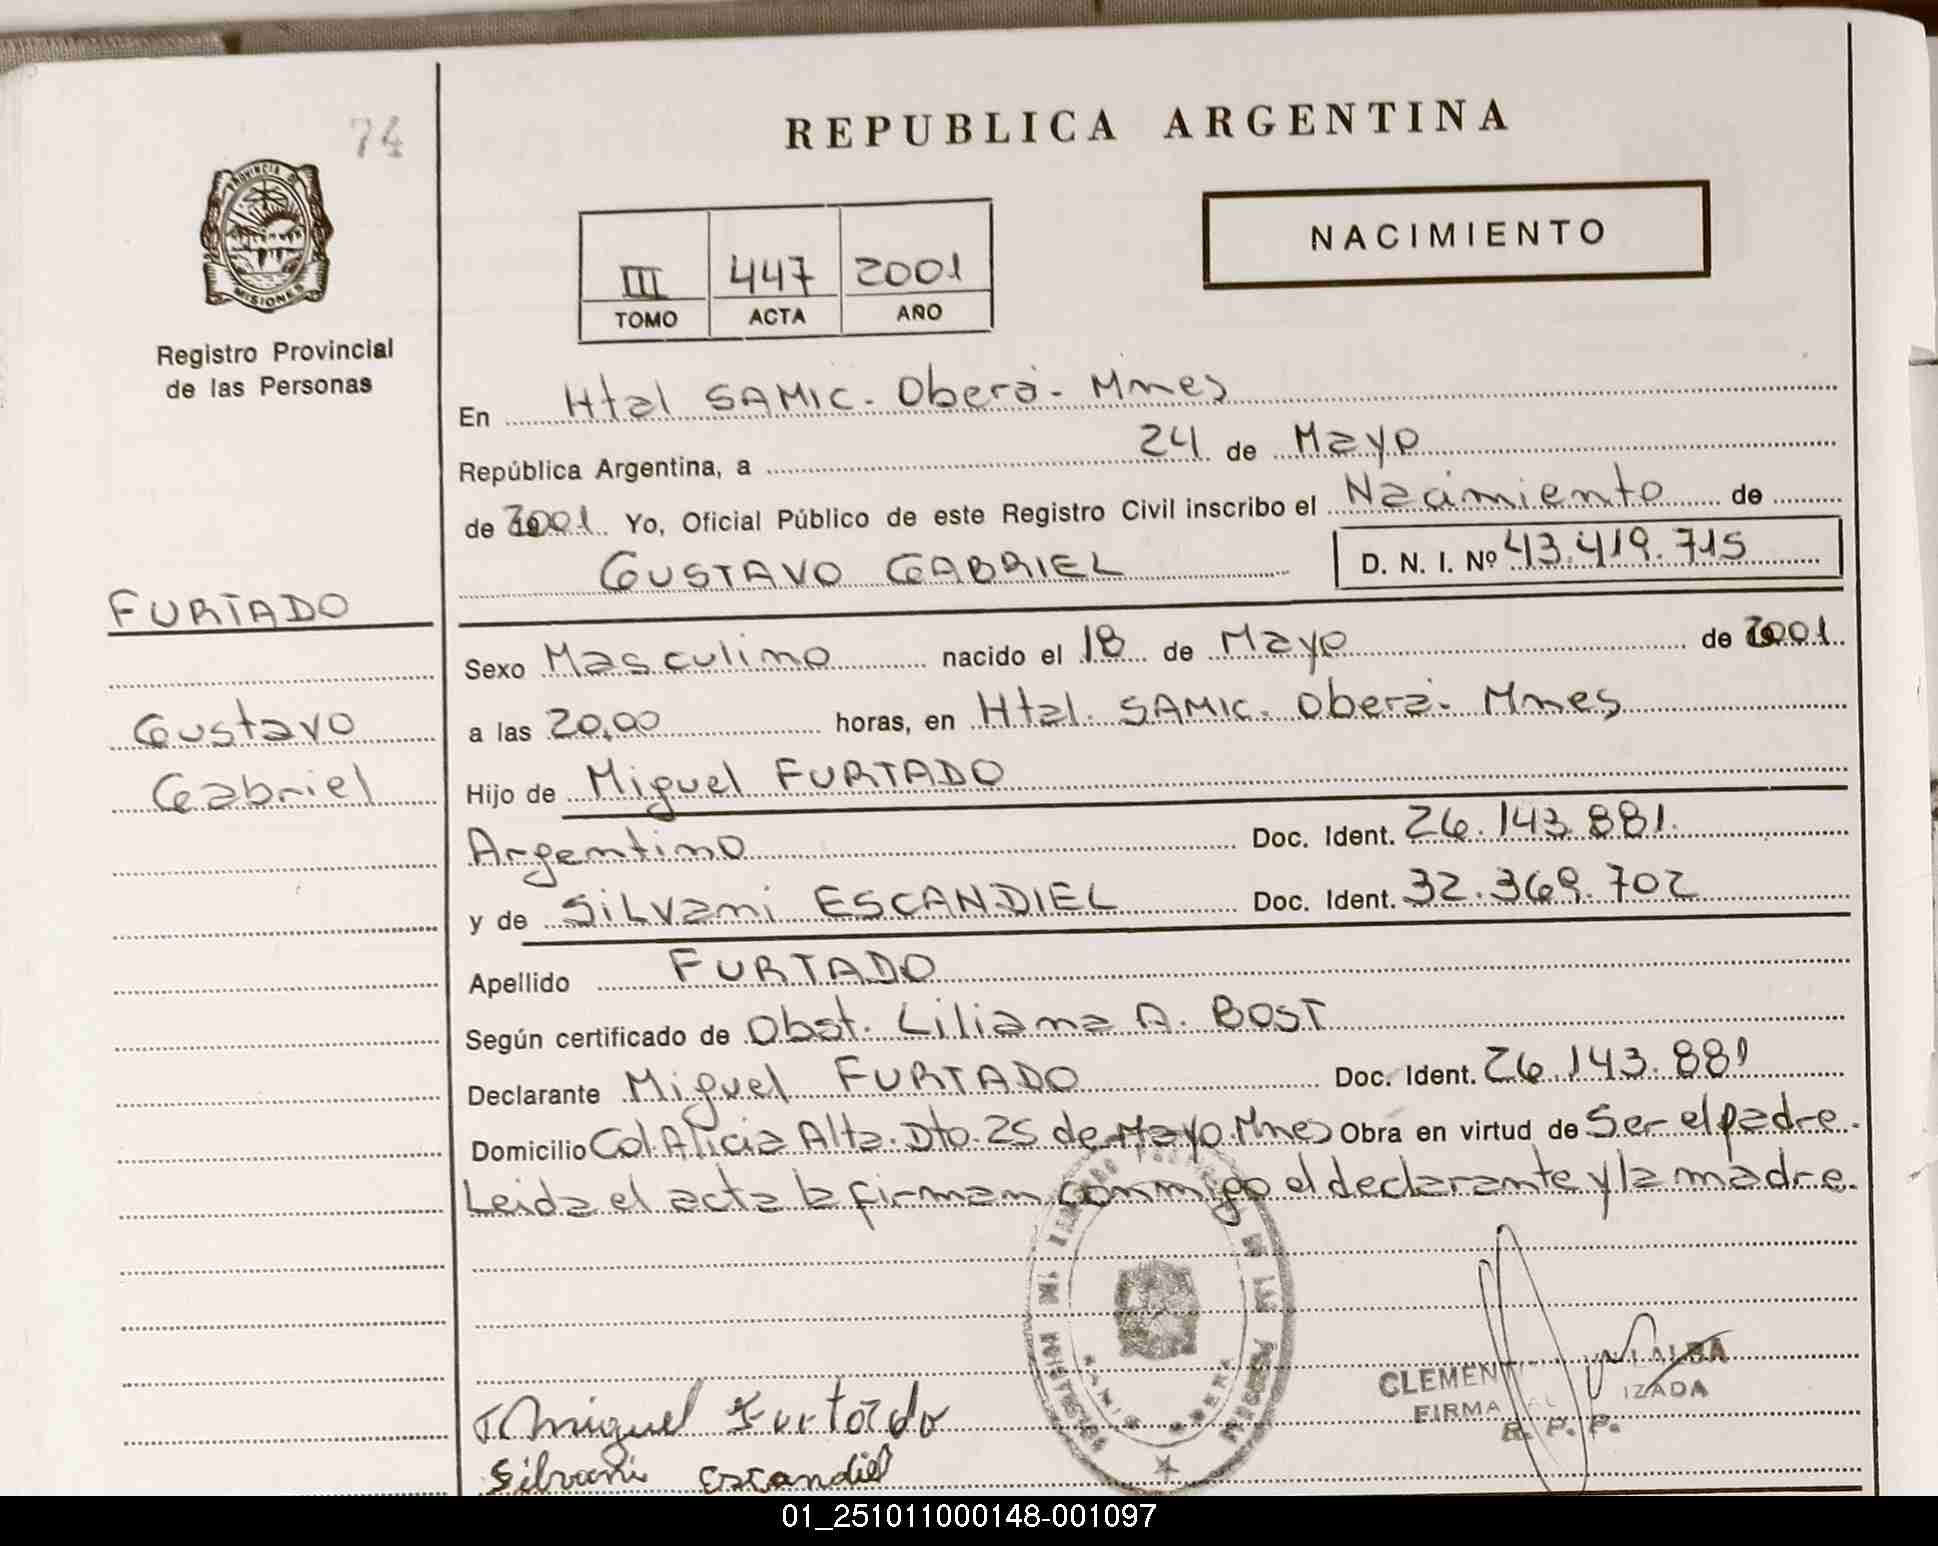 74
REPUBLICA ARGENTINA
PROVINCIA DE
MISIONES
Registro Provincial
de las Personas
III 447 2001
TOMO ACTA AÑO
NACIMIENTO
En Htal SAMIC. Oberá. Mnes
República Argentina, a 24 de Mayo
de 2001 Yo, Oficial Público de este Registro Civil inscribo el Nacimiento de
GUSTAVO GABRIEL D. N. I. Nº 43.419.715
FURTADO
Gustavo
Gabriel
Sexo Masculino nacido el 18 de Mayo de 2001
a las 20,00 horas, en Htal. SAMIC. Oberá. Mnes
Hijo de Miguel FURTADO
Argentino Doc. Ident. 26.143.881.
y de SiLVani ESCANDIEL Doc. Ident. 32.369.702
Apellido FURTADO
Según certificado de Obst. Liliana A. BOST
Declarante Miguel FURTADO Doc. Ident. 26.143.881
Domicilio Col. Alicia Alta. Dto. 25 de Mayo. Mnes Obra en virtud de Ser el padre.
Leida el acta la firman conmigo el declarante y la madre.
Miguel Furtado
Silvani Escandiel
CLEMEN
FIRMA IZADA
R. P. P.
01_251011000148-001097